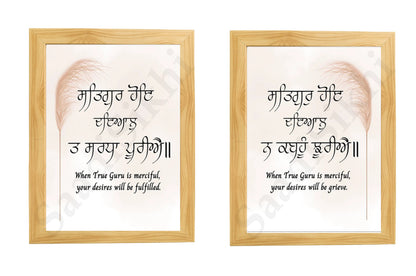 ਸਤਿਗੁਰ ਹੋਇ
ਦਇਆਲੁ
ਤ ਸਰਧਾ ਪੂਰੀਐ॥
When True Guru is merciful,
your desires will be fulfilled.
ਸਤਿਗੁਰੁ ਹੋਇ
ਦਇਆਲੁ
ਨ ਕਬਹੂੰ ਝੂਰੀਐ॥
When True Guru is merciful,
your desires will be grieve.